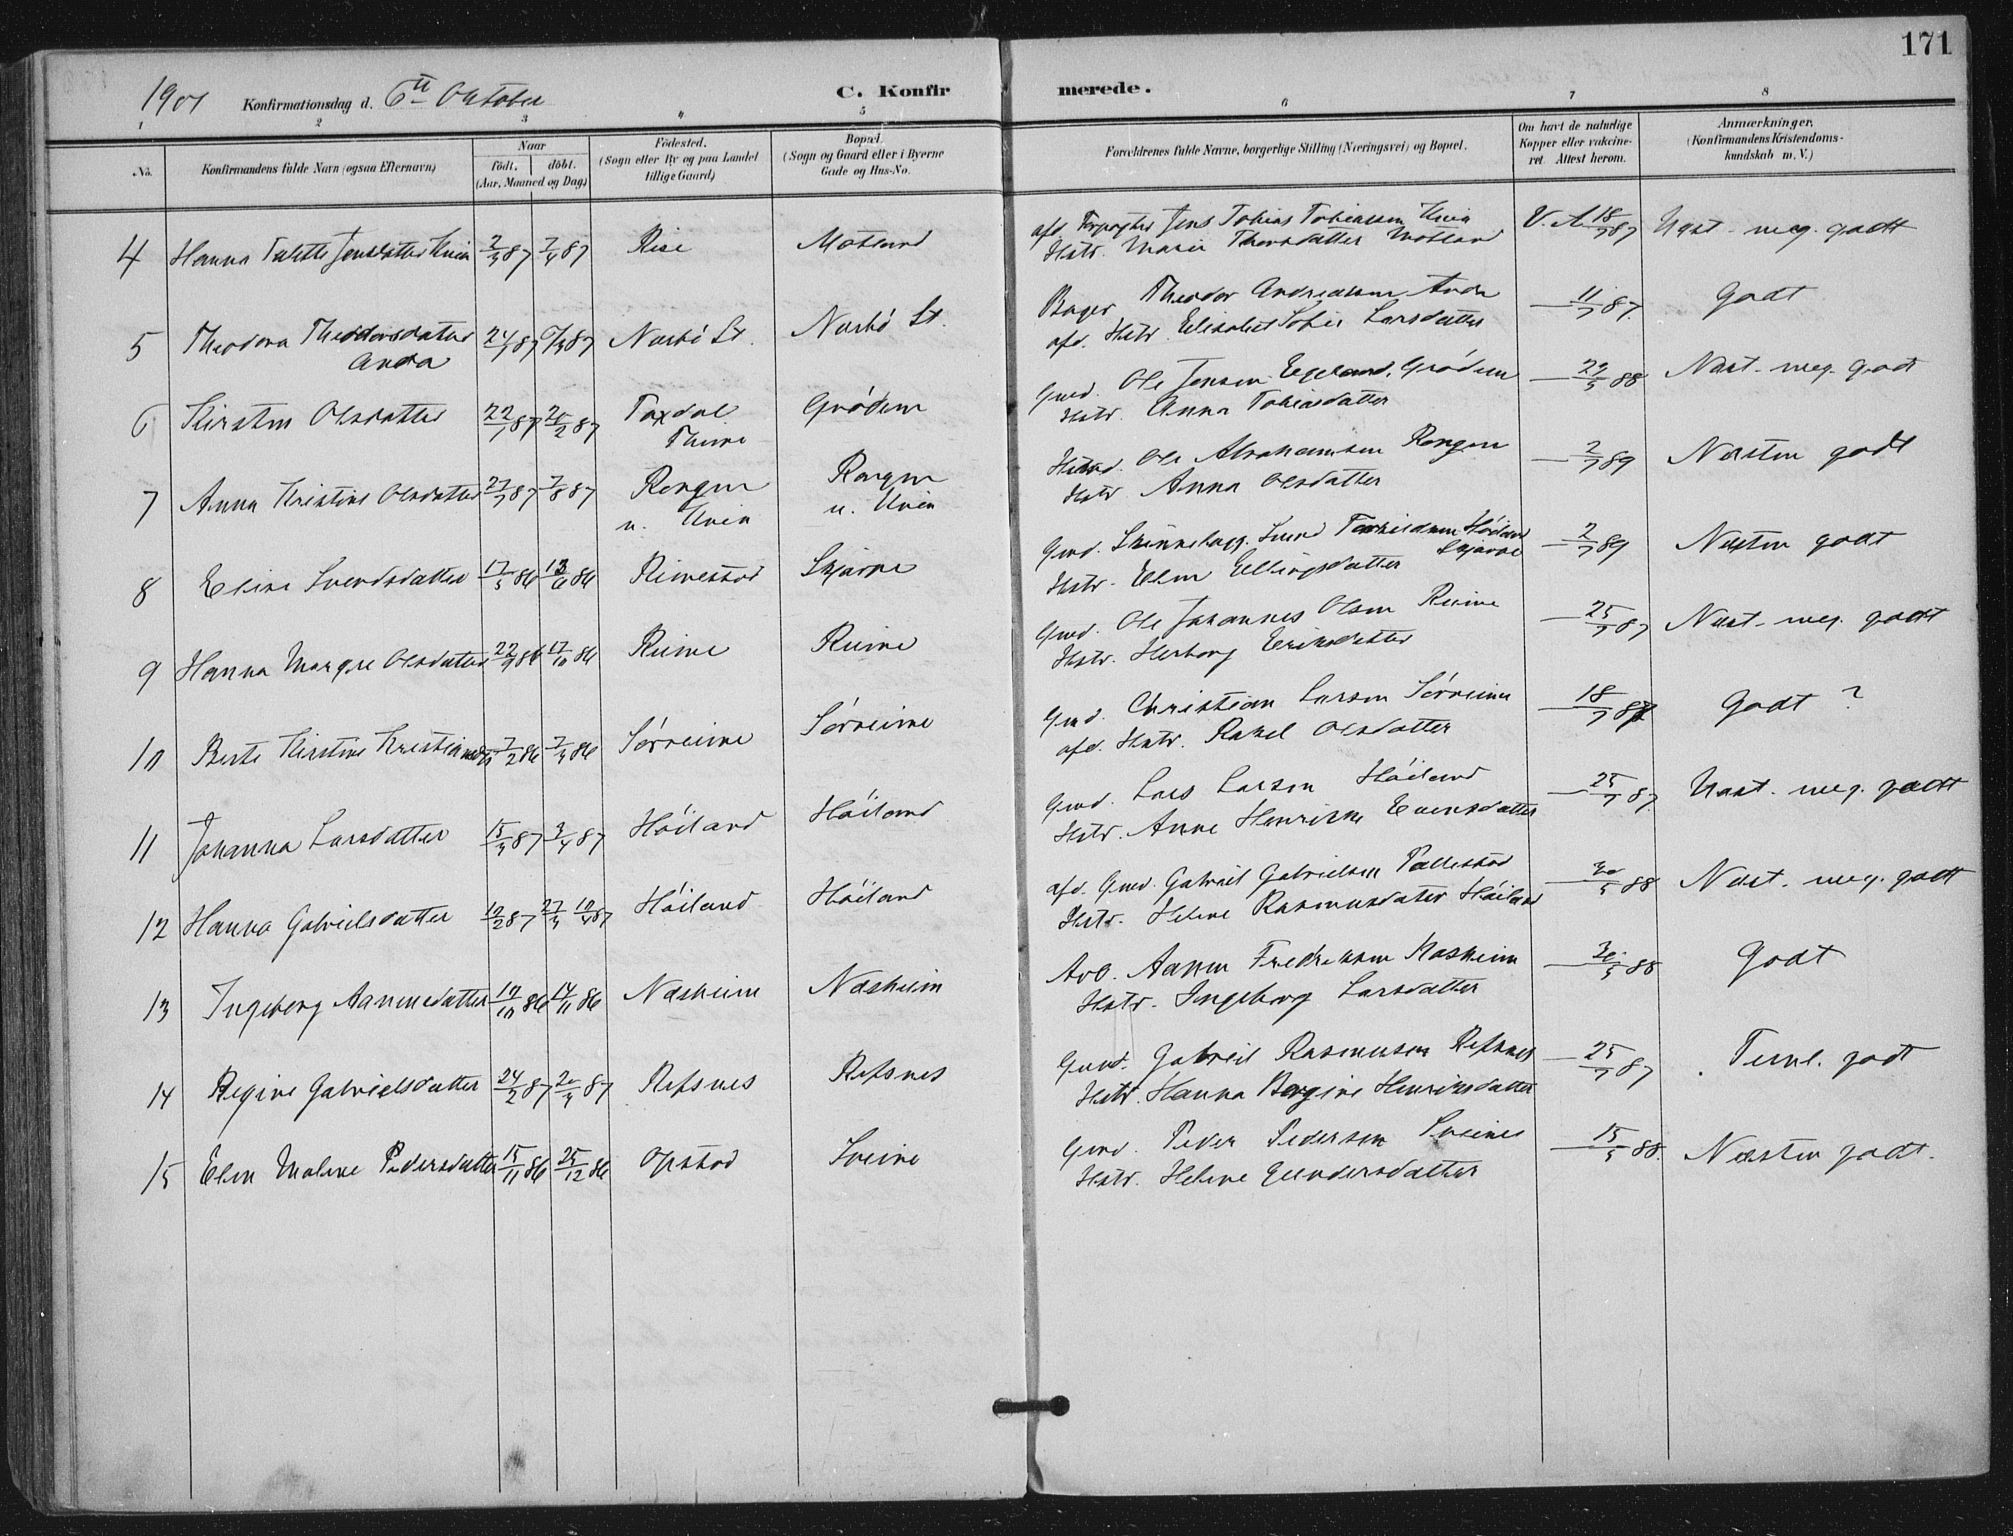 171
1901 Konfirmationsdag d. 6te Oktober
C. Konfir merede.
1 2 3 4 5 6 7 8
No.
Konfirmandens fulde Navn (ogsaa Efternavn)
Naar
födt. döbt.
(Aar, Maaned og Dag)
Födested.
(Sogn eller By og paa Landet
tillige Gaard)
Bopæl.
(Sogn og Gaard eller i Byerne
Gade og Hus-No.
Forældrenes fulde Navne, borgerlige Stilling (Næringsvei) og Bopæl.
Om havt de naturlige
Kopper eller vakcine-
ret. Attest herom.
Anmærkninger.
(Konfirmandens Kristendoms-
kundskab m. V.)
4 Hanna Jensdatter 87 7/4 87 Rise Motland
afd. Jens Tobias Tobiassen
Hstr. Marie Motland
V. A. 18/7 87 Næst. meg. godt
5 Theodora Theodorsdatter
Anda
24/1 87 87 Nærbö St. Nærbö St.
Bager Theodor Andreassen Anda
afd. Hstr. Elisabet Sofie Larsdatter
11/7 87. Godt
6 Kirsten Olsdatter 22/1 87 20/2 87 Taxdal
Thime
Grödem
Gmd. Ole Jensen Egeland, Grödem
Hstr. Anna Tobiasdatter
88 Næst. meg. godt
7 Anna Kristine Olsdatter 27/7 87 7/8 87
u.
u.
Ole Abrahamsen
Hstr. Anna Olsdatter
2/7 89 Næsten godt
8 Eline Svendsdatter 17/5 86 13/6 86 Rimestad Skjærpe
Gmd. Svend Höiland
Skjærpe
Hstr. Elen Ellingsdatter
2/7 89 Næsten godt
9 Hanna Margre Olsdatter 22/9 86 17/10 86 Reime Reime
Gmd. Ole Johannes Olsen Reime
Hstr. Herborg Eriksdatter
25/7 87 Næst. meg. godt
10 Berte Kirstine 7/2 86 7/3 86 Sörreime Sörreime
Gmd. Christian Larsen Sörreime
afd. Hstr. Rakel Olsdatter
18/7 87 Godt ?
11 Johanna Larsdatter 15/3 87 3/4 87 Höiland Höiland
Gmd. Lars Larsen Höiland
Hstr. Anne Henrikke Evensdatter
25/7 87. Næst. meg. godt
12 Hanna Gabrielsdatter 10/2 87 27/3 10/4 87 Höiland Höiland
afd. Gmd. Gabriel Gabrielsen
Hstr. Helene Rasmusdatter Höiland
30/5 88 Næst. meg. godt
13 Ingeborg Aanensdatter 10/10 86 14/11 86 Næsheim Næsheim
Arb. Aanen Fredriksen Næsheim
Hstr. Ingeborg Larsdatter
30/5 88 Godt
14 Regine Gabrielsdatter 24/2 87 20/3 87 Refsnes Refsnes
Gmd. Gabriel Rasmusen Refsnes
Hstr. Hanna Bergine Henriksdatter
25/7 87 Teml. godt
15 Elen Malene Pedersdatter 15/11 86 25/12 86 Opstad
Gmd. Peder Pedersen
Hstr. Helene Gundersdatter
15/5 88. Næsten godt.